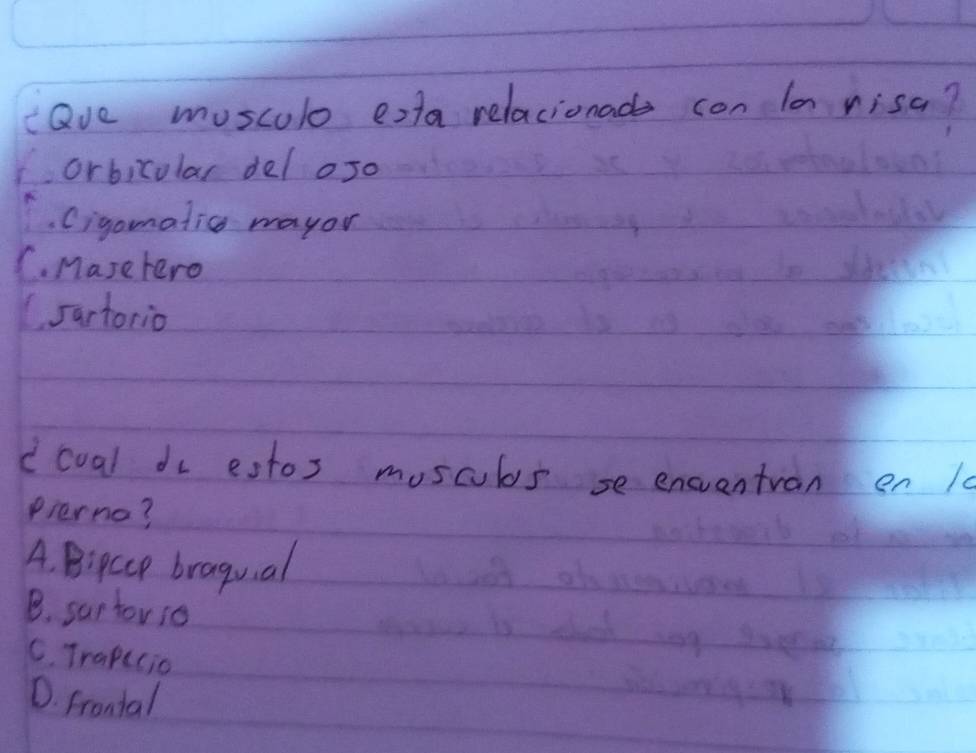 ¿Que musculo esta relacionado con la risa?
. orbicular del ojo
. Cigomatico mayor
C. Masetero
. sartorio
¿ cual de estos musculos se encuentran en la
pierna?
A. Bipcep braquial
B. sartorio
C. Trapecio
D. frontal